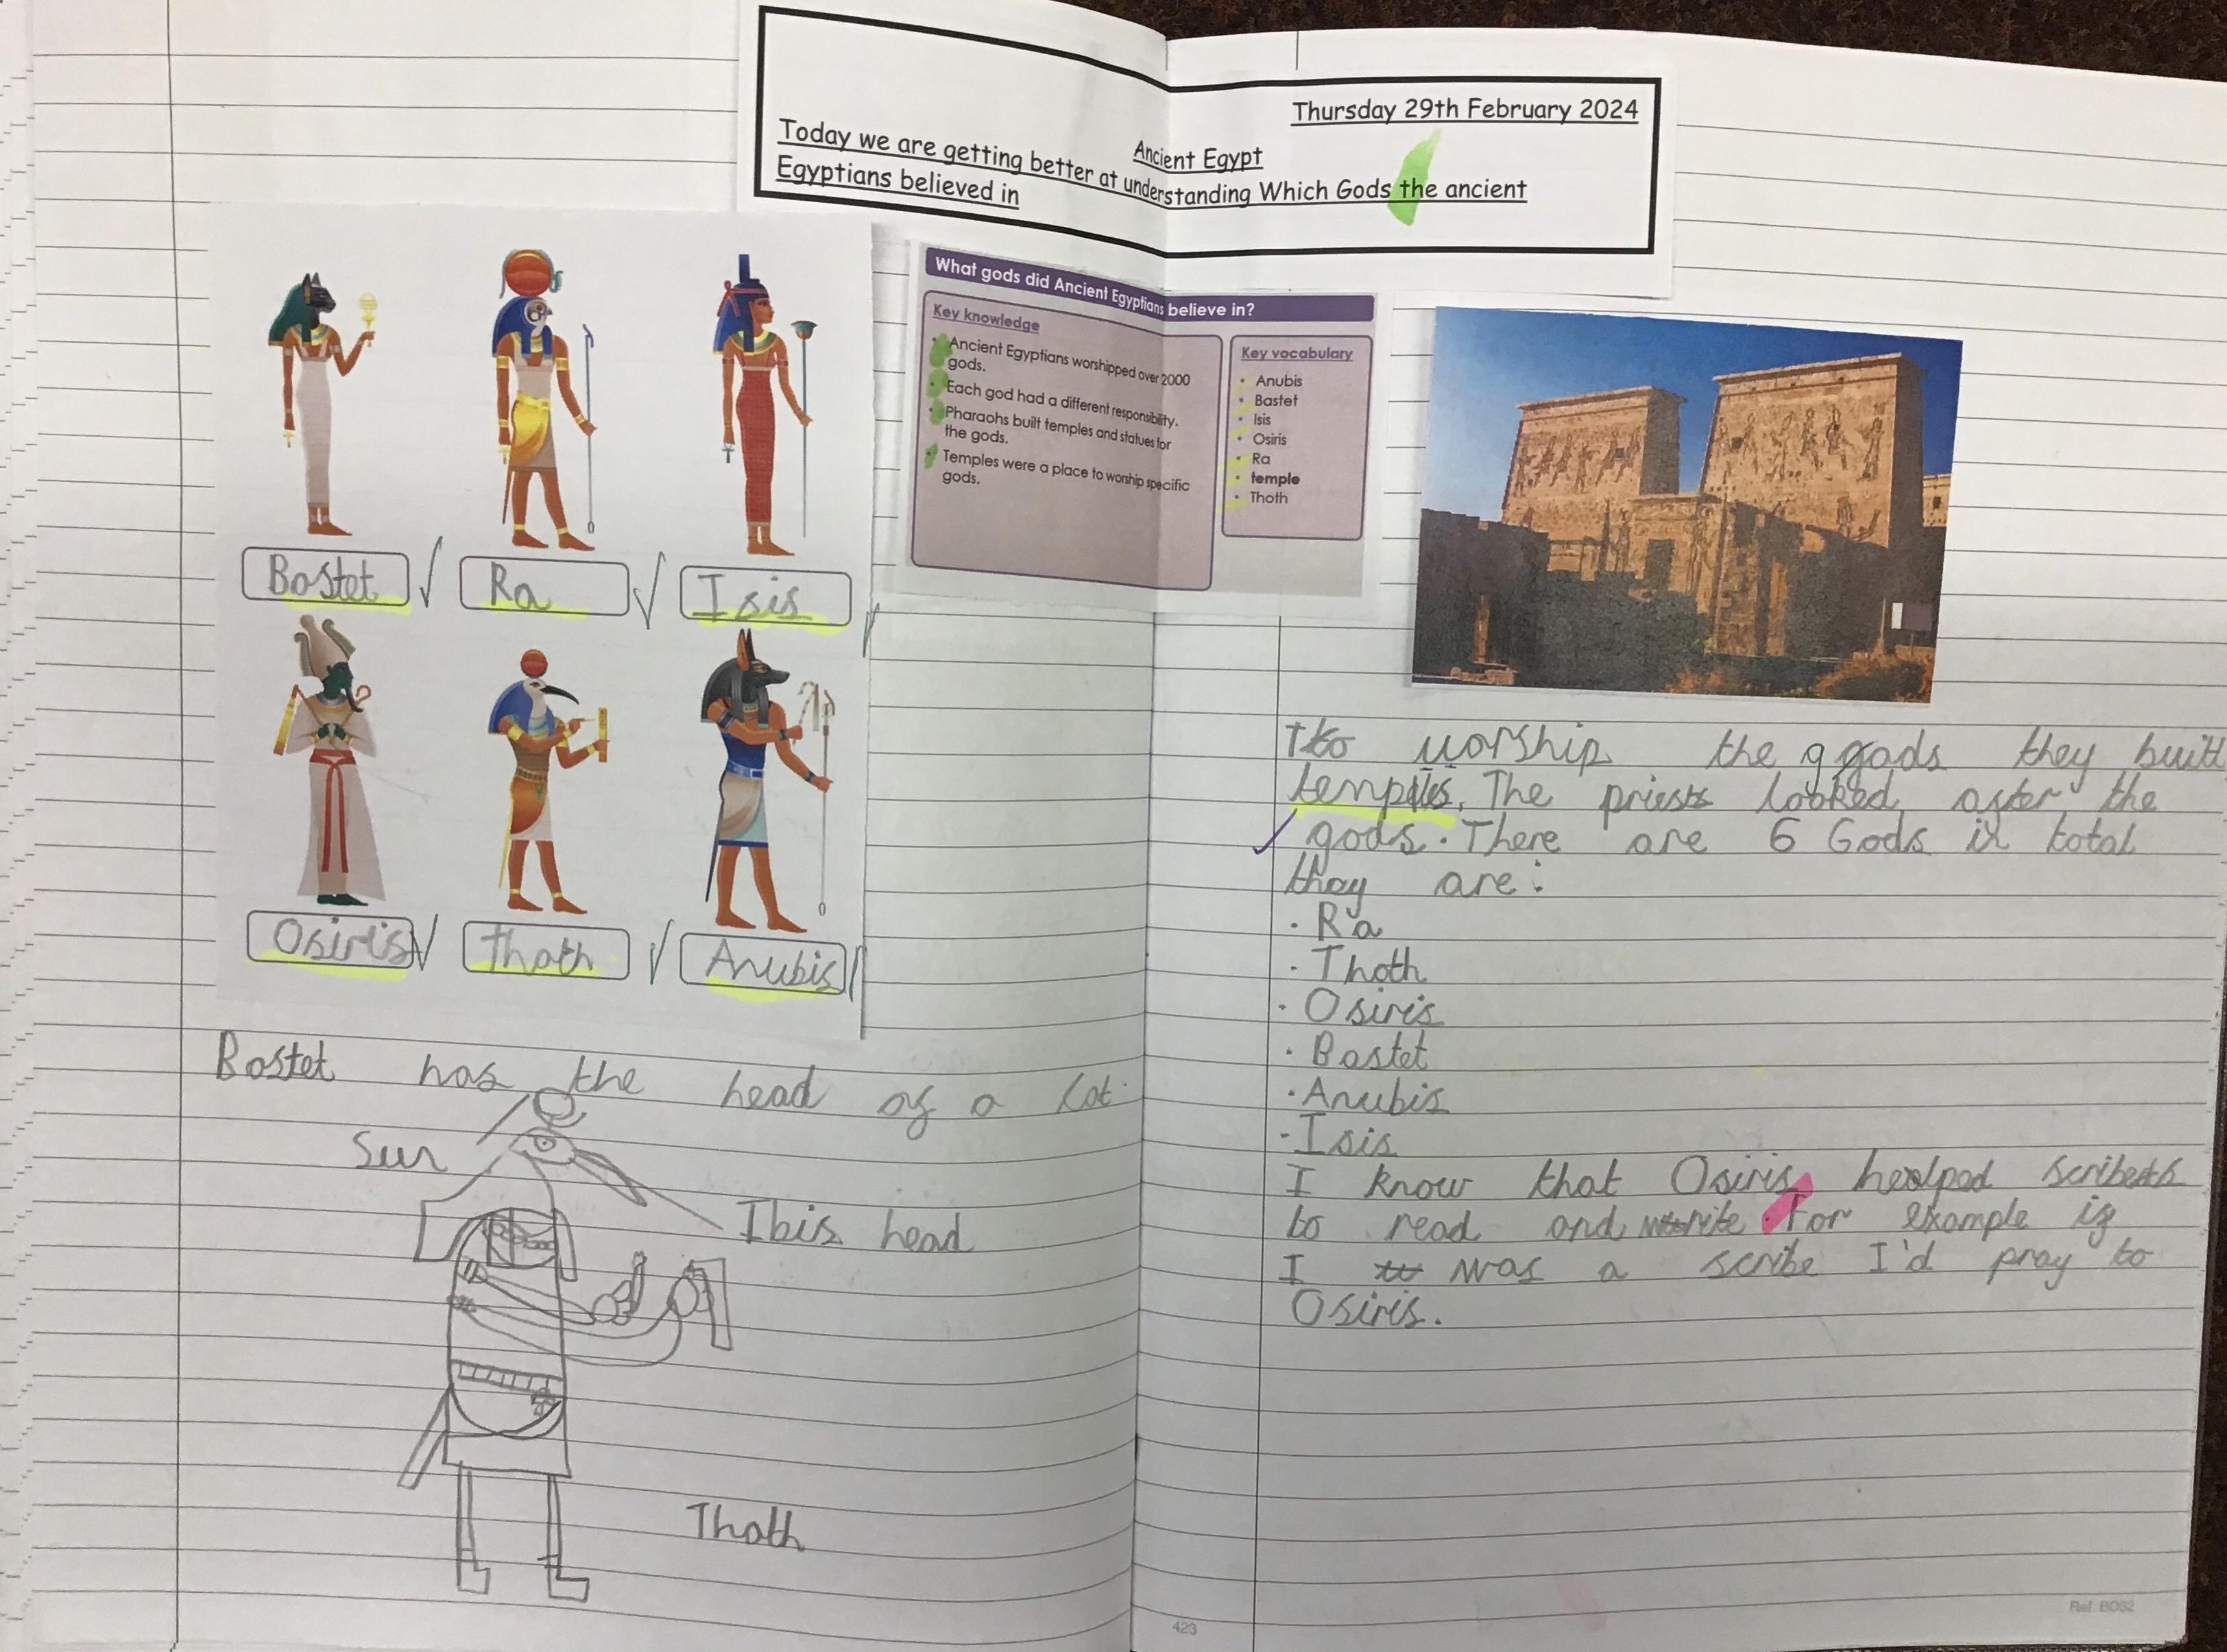 Thursday 29th February 2024
Ancient Egypt
Today we are getting better at understanding Which Gods the ancient
Egyptians believed in
Bastet
Ra
Isis
Osiris
Thoth
Anubis
What gods did Ancient Egyptians believe in?
Key knowledge
• Ancient Egyptians worshipped over 2000
gods.
• Each god had a different responsibility.
• Pharaohs built temples and statues for
the gods.
• Temples were a place to worship specific
gods.
Key vocabulary
• Anubis
• Bastet
• Isis
• Osiris
• Ra
• temple
• Thoth
Bastet has the head of a cat.
Sun
Ibis head
Thoth
to worship the gods they built
temples. The priests looked after the
gods. There are 6 Gods in total
they are:
· Ra
· Thoth
· Osiris
· Bastet
· Anubis
· Isis
I know that Osiris helped scribes
to read and write. For example if
I was a scribe I'd pray to
Osiris.
423
Ref: BOS2